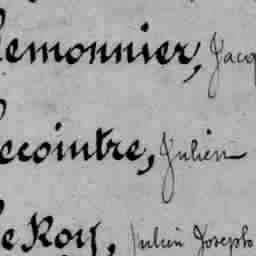 Lemonnier, Jacq
Lecointre, Julien
Le Roy, Julien Joseph